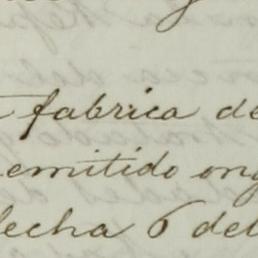 fabrica de
emitido
fecha 6 del